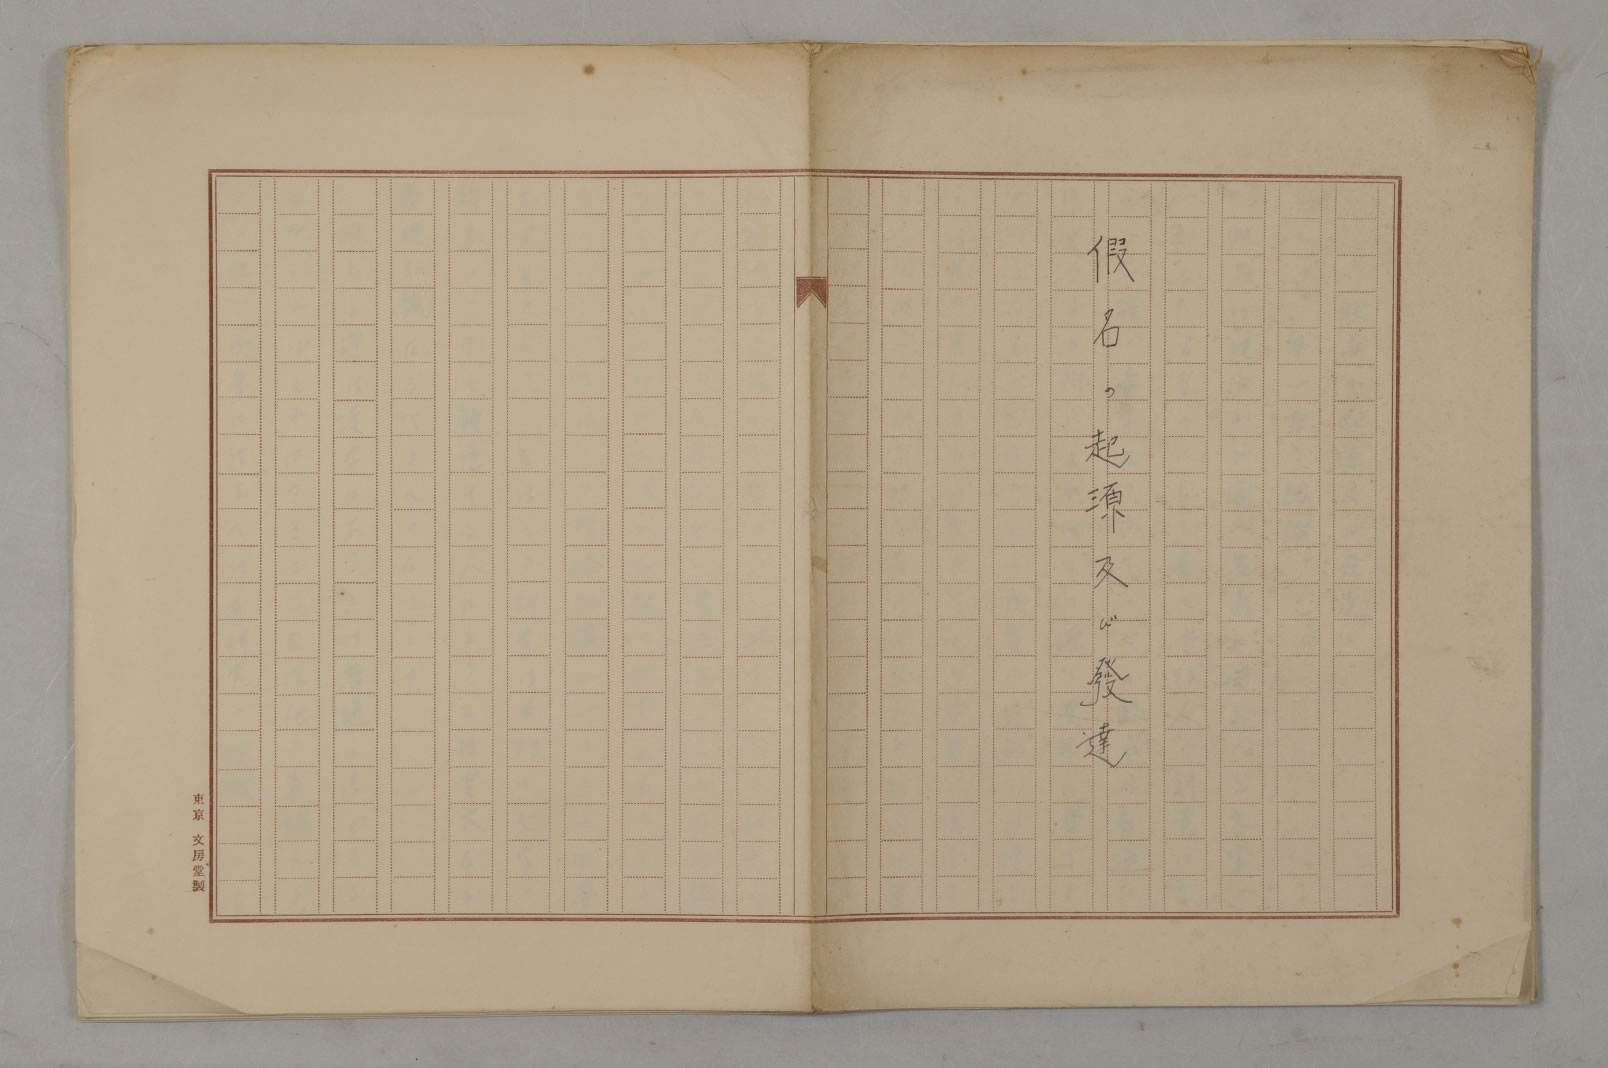 假名の起源及び發達
東京 文房堂製